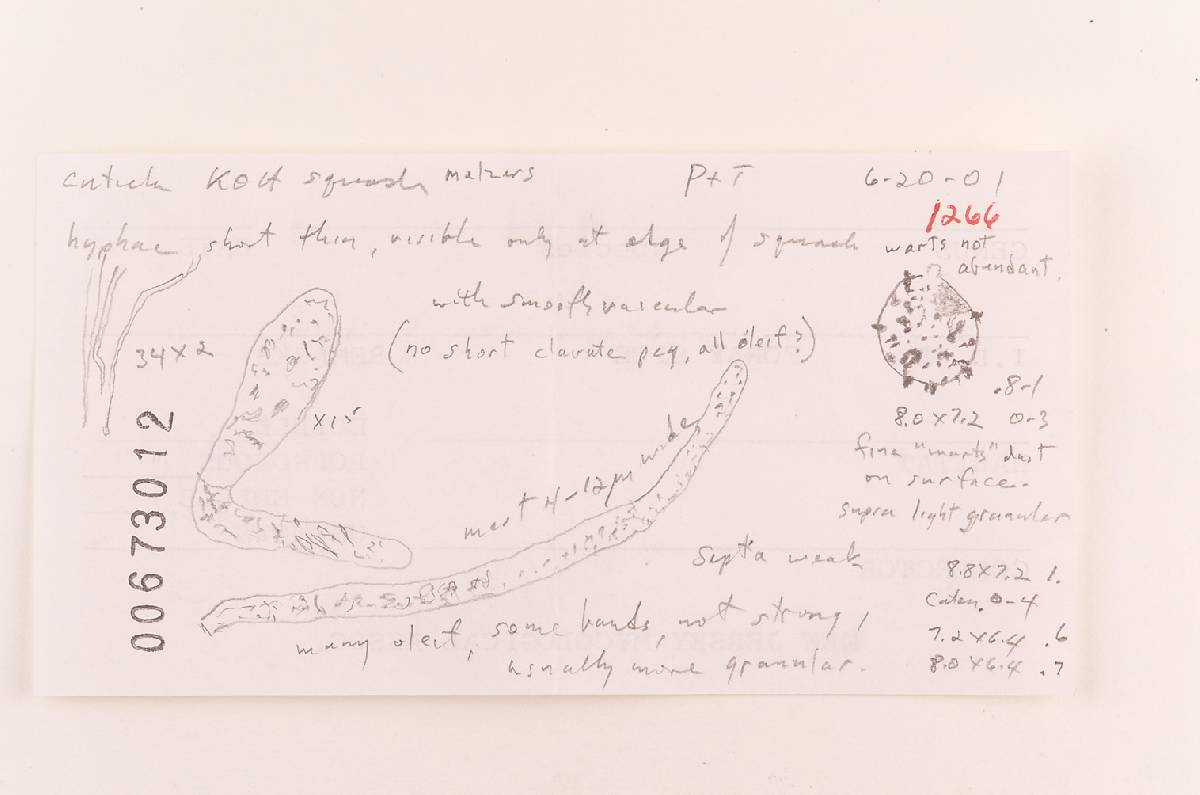 cuticle KOH squash melzers P+T 6-20-01
1266
hyphae short thin, visible only at edge of squash
warts not
abundant.
with smooth vascular
(no short clavate peg, all oleif?)
34x2
x15
.8-1
8.0x7.2 0-3
fine "warts" dust
on surface.
supra light granular
most 4-12µm wide
Septa weak
8.8x7.2 1.
Caten. 0-4
7.2x6.4 .6
8.0x6.4 .7
many oleif, some bands, not strong,
usually more granular.
00673012